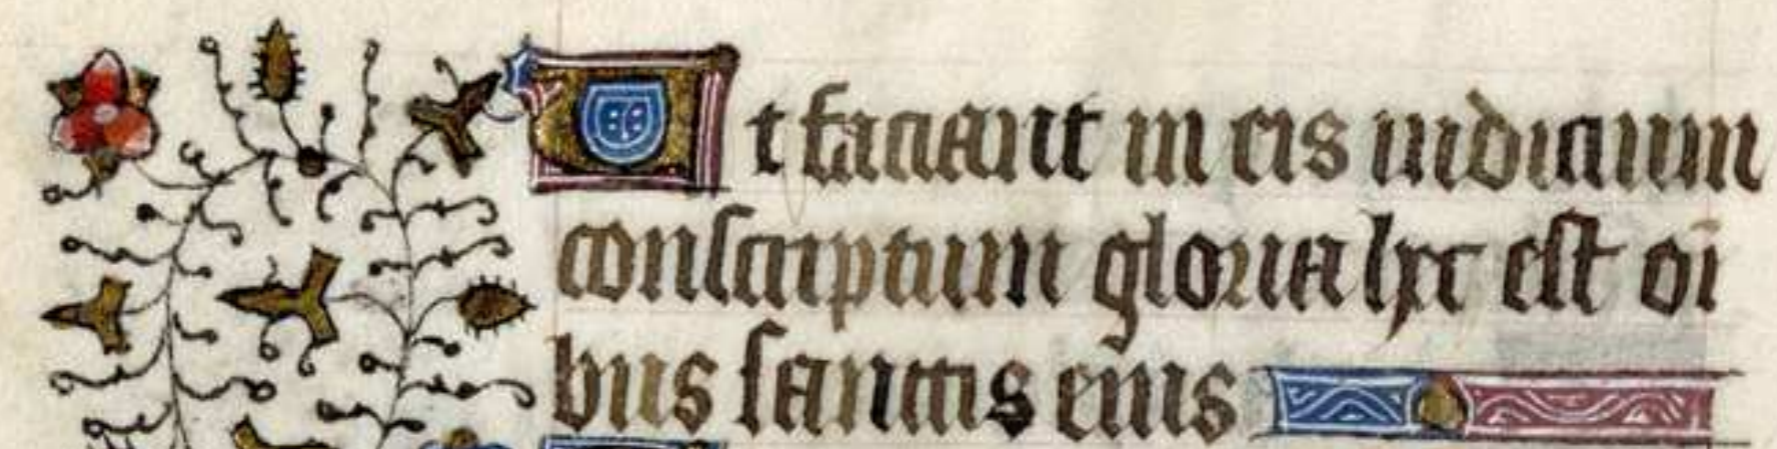 Ut faciant in eis iudicium
conscriptum gloria hec est oi
bus sanctis eius